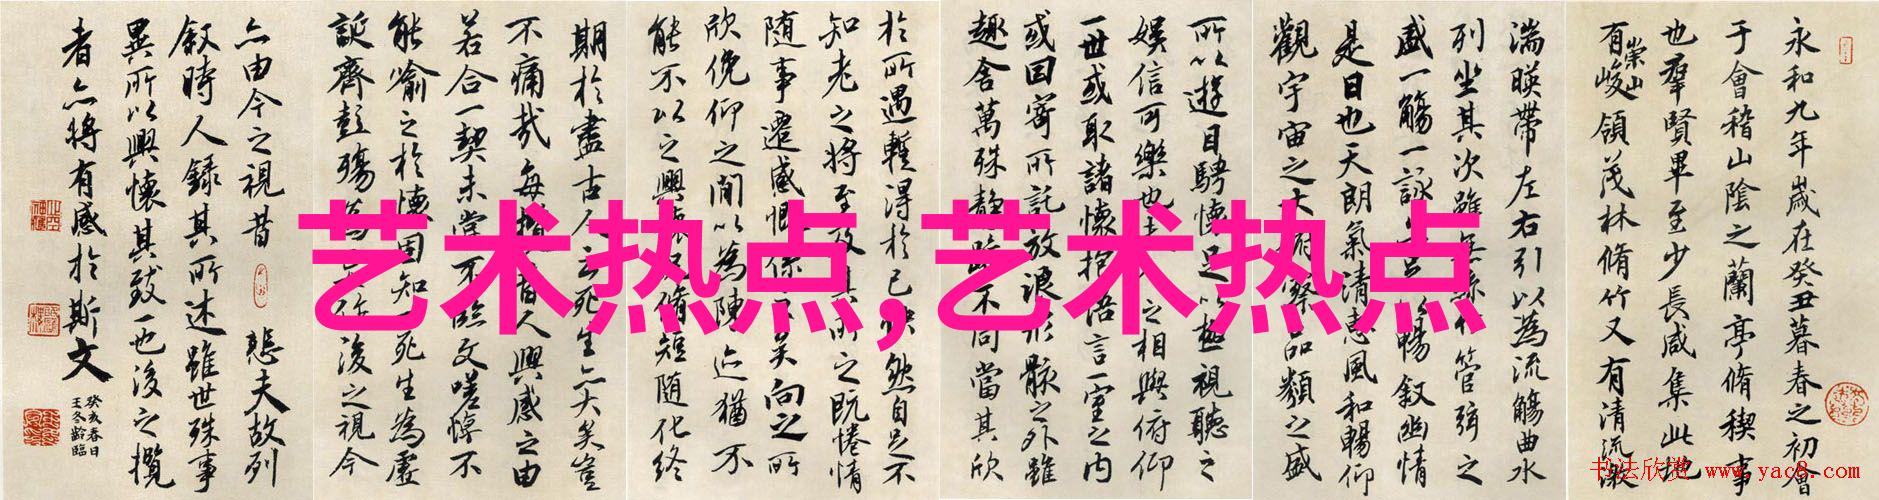 永和九年歲在癸丑暮春之初會
于會稽山陰之蘭亭脩稧事
也羣賢畢至少長咸集此地
有崇山峻領茂林脩竹又有清流激
湍暎帶左右引以為流觴曲水
列坐其次雖無絲竹管弦之
盛一觴一詠亦足以暢叙幽情
是日也天朗氣清惠風和暢仰
觀宇宙之大俯察品類之盛
所以遊目騁懷足以極視聽之
娛信可樂也夫之相與俯仰
一世或取諸懷抱悟言一室之內
或因寄所託放浪形骸之外雖
趣舍萬殊靜躁不同當其欣
於所遇暫得於己快然自足不
知老之將至及其所之既惓情
隨事遷感慨係之矣向之所
欣俛仰之閒以為陳迹猶不
能不以之興懷況脩短隨化終
期於盡古人云死生亦大矣豈
不痛哉每攬昔人興感之由
若合一契未嘗不臨文嗟悼不
能喻之於懷固知一死生為虛
誕齊彭殤為妄作後之視今
亦由今之視昔悲夫故列
叙時人錄其所述雖世殊事
異所以興懷其致一也後之攬
者亦將有感於斯文
癸亥春日
王冬齡臨
艺术热点,艺术热点
书法欣赏 www.yac8.com